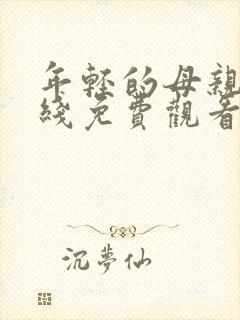 年輕的母親
綫免費觀看
沉夢仙